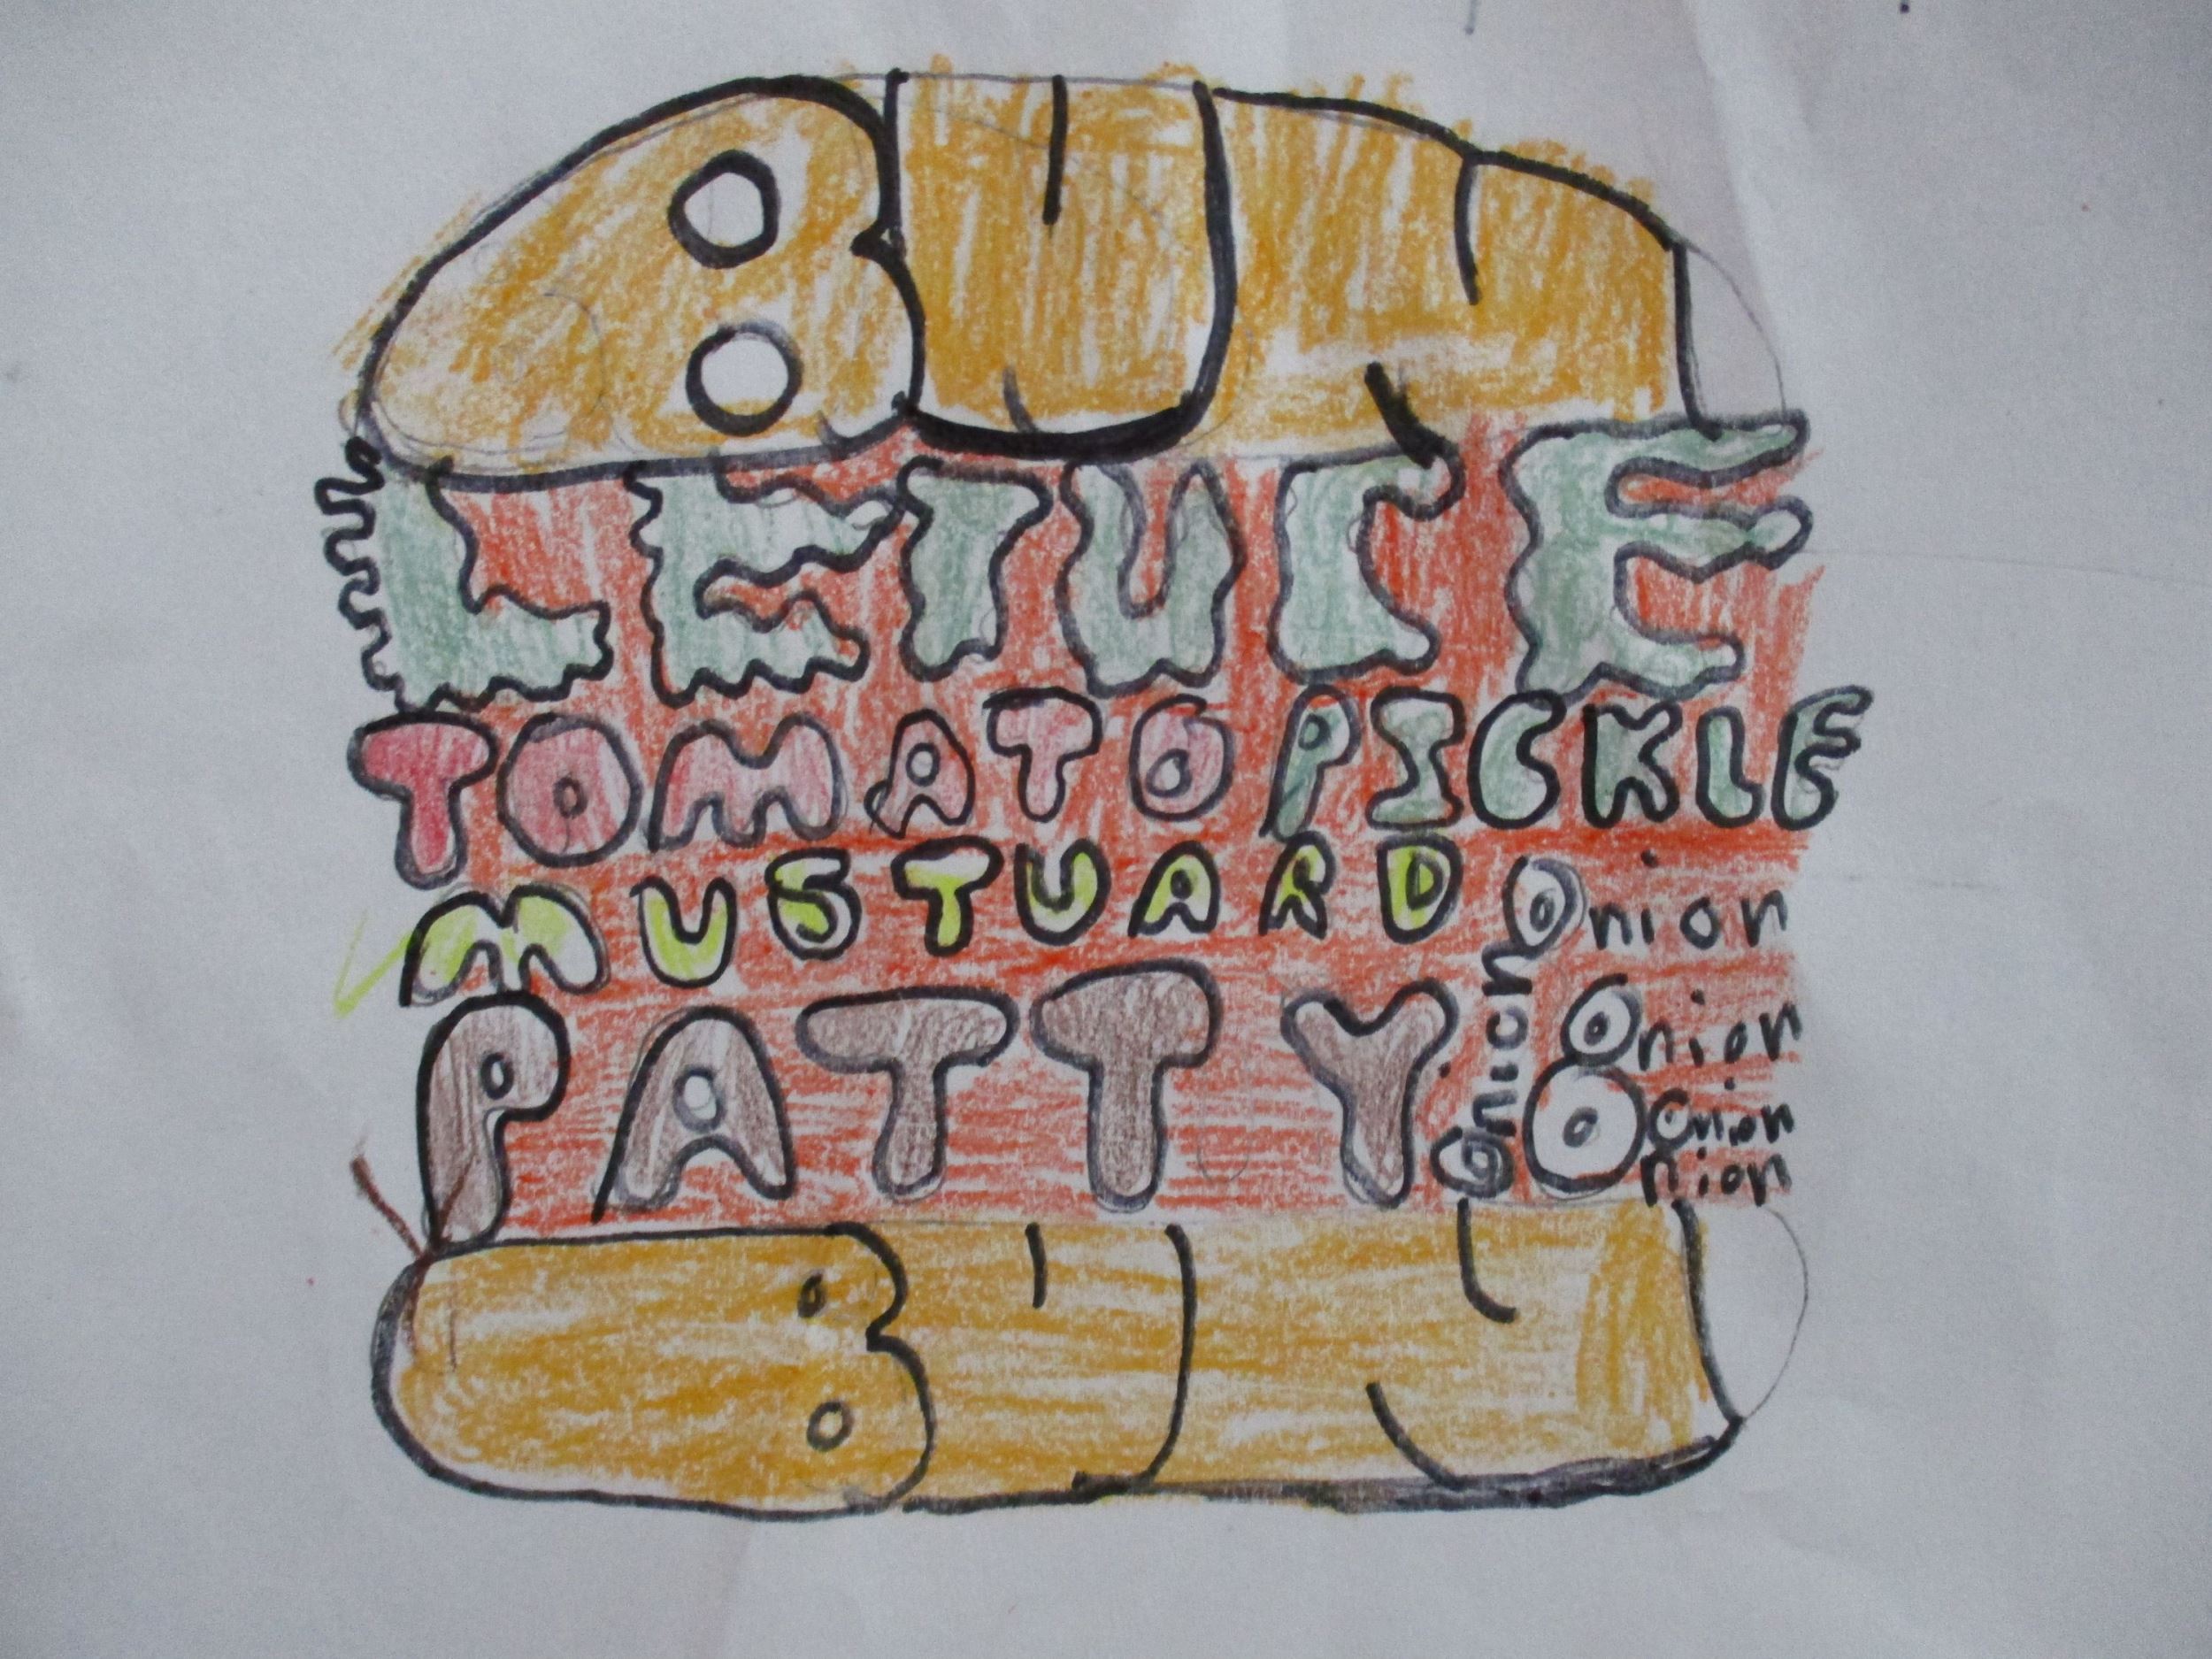 BUN
LETUCE
TOMATO PICKLE
MUSTUARD Onion
PATTY Onion Onion
Onion
nion
BUN